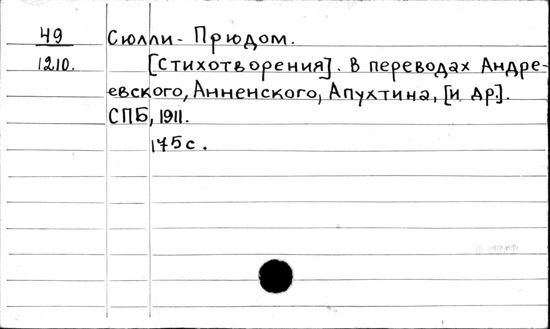 49 Сюлли-Прюдом.
1210. [Стихотворения]. В переводах Андре-
евского, Анненского, Апухтина, [и др.].
СПБ, 1911.
175 с.